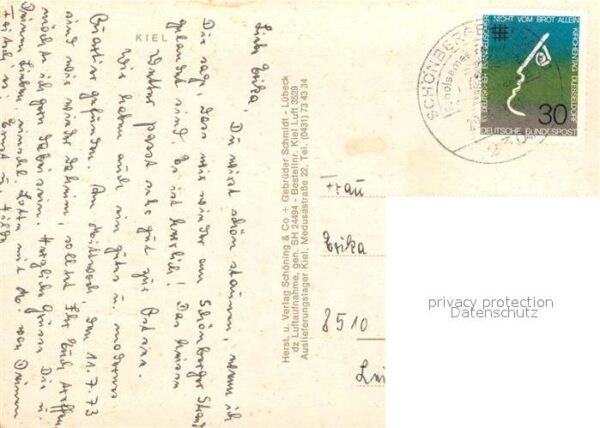 KIEL
Liebe Erika,
Du wirst schön staunen, wenn ich
Dir sage, dass wir wieder am Schönberger Strand
gelandet sind. Es ist herrlich! Das heisse
Wetter passt sehr gut zur Ostsee.
Wir haben auch ein gutes u. modernes
Quartier gefunden. Am Mittwoch, den 11.7.73
sind wir wieder daheim, solltet Ihr Euch treffen
möchte ich gern dabei sein. Herzliche Grüsse Dir u.
Deinen Lieben, Lotte mit von Deinen
Ernst u. Hilde
Herst. u. Verlag Schöning & Co + Gebrüder Schmidt - Lübeck
dz Luftaufnahme, gen. SH 24494 - Bestellnr. Kiel Luft 3629
Auslieferungslager Kiel, Medusastraße 22, Tel. (0431) 73 43 34
SCHÖNBERGER
NICHT VOM BROT ALLEIN
DEUTSCHER EVANGELISCHER KIRCHENTAG DÜSSELDORF
30
DEUTSCHE BUNDESPOST
Frau
Erika
8510
privacy protection
Datenschutz